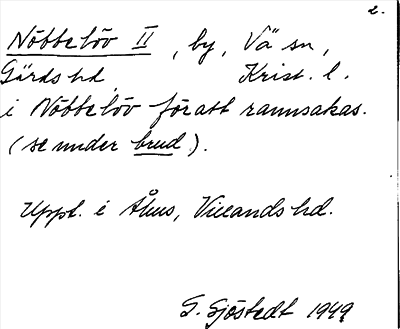 2.
Nöbbelöv II, by, Vä sn,
Gärds hd, Krist. l.
i Nöbbelöv för att rannsakas.
(se under brud).
Uppt. i Åhus, Villands hd.
G. Sjöstedt 1949